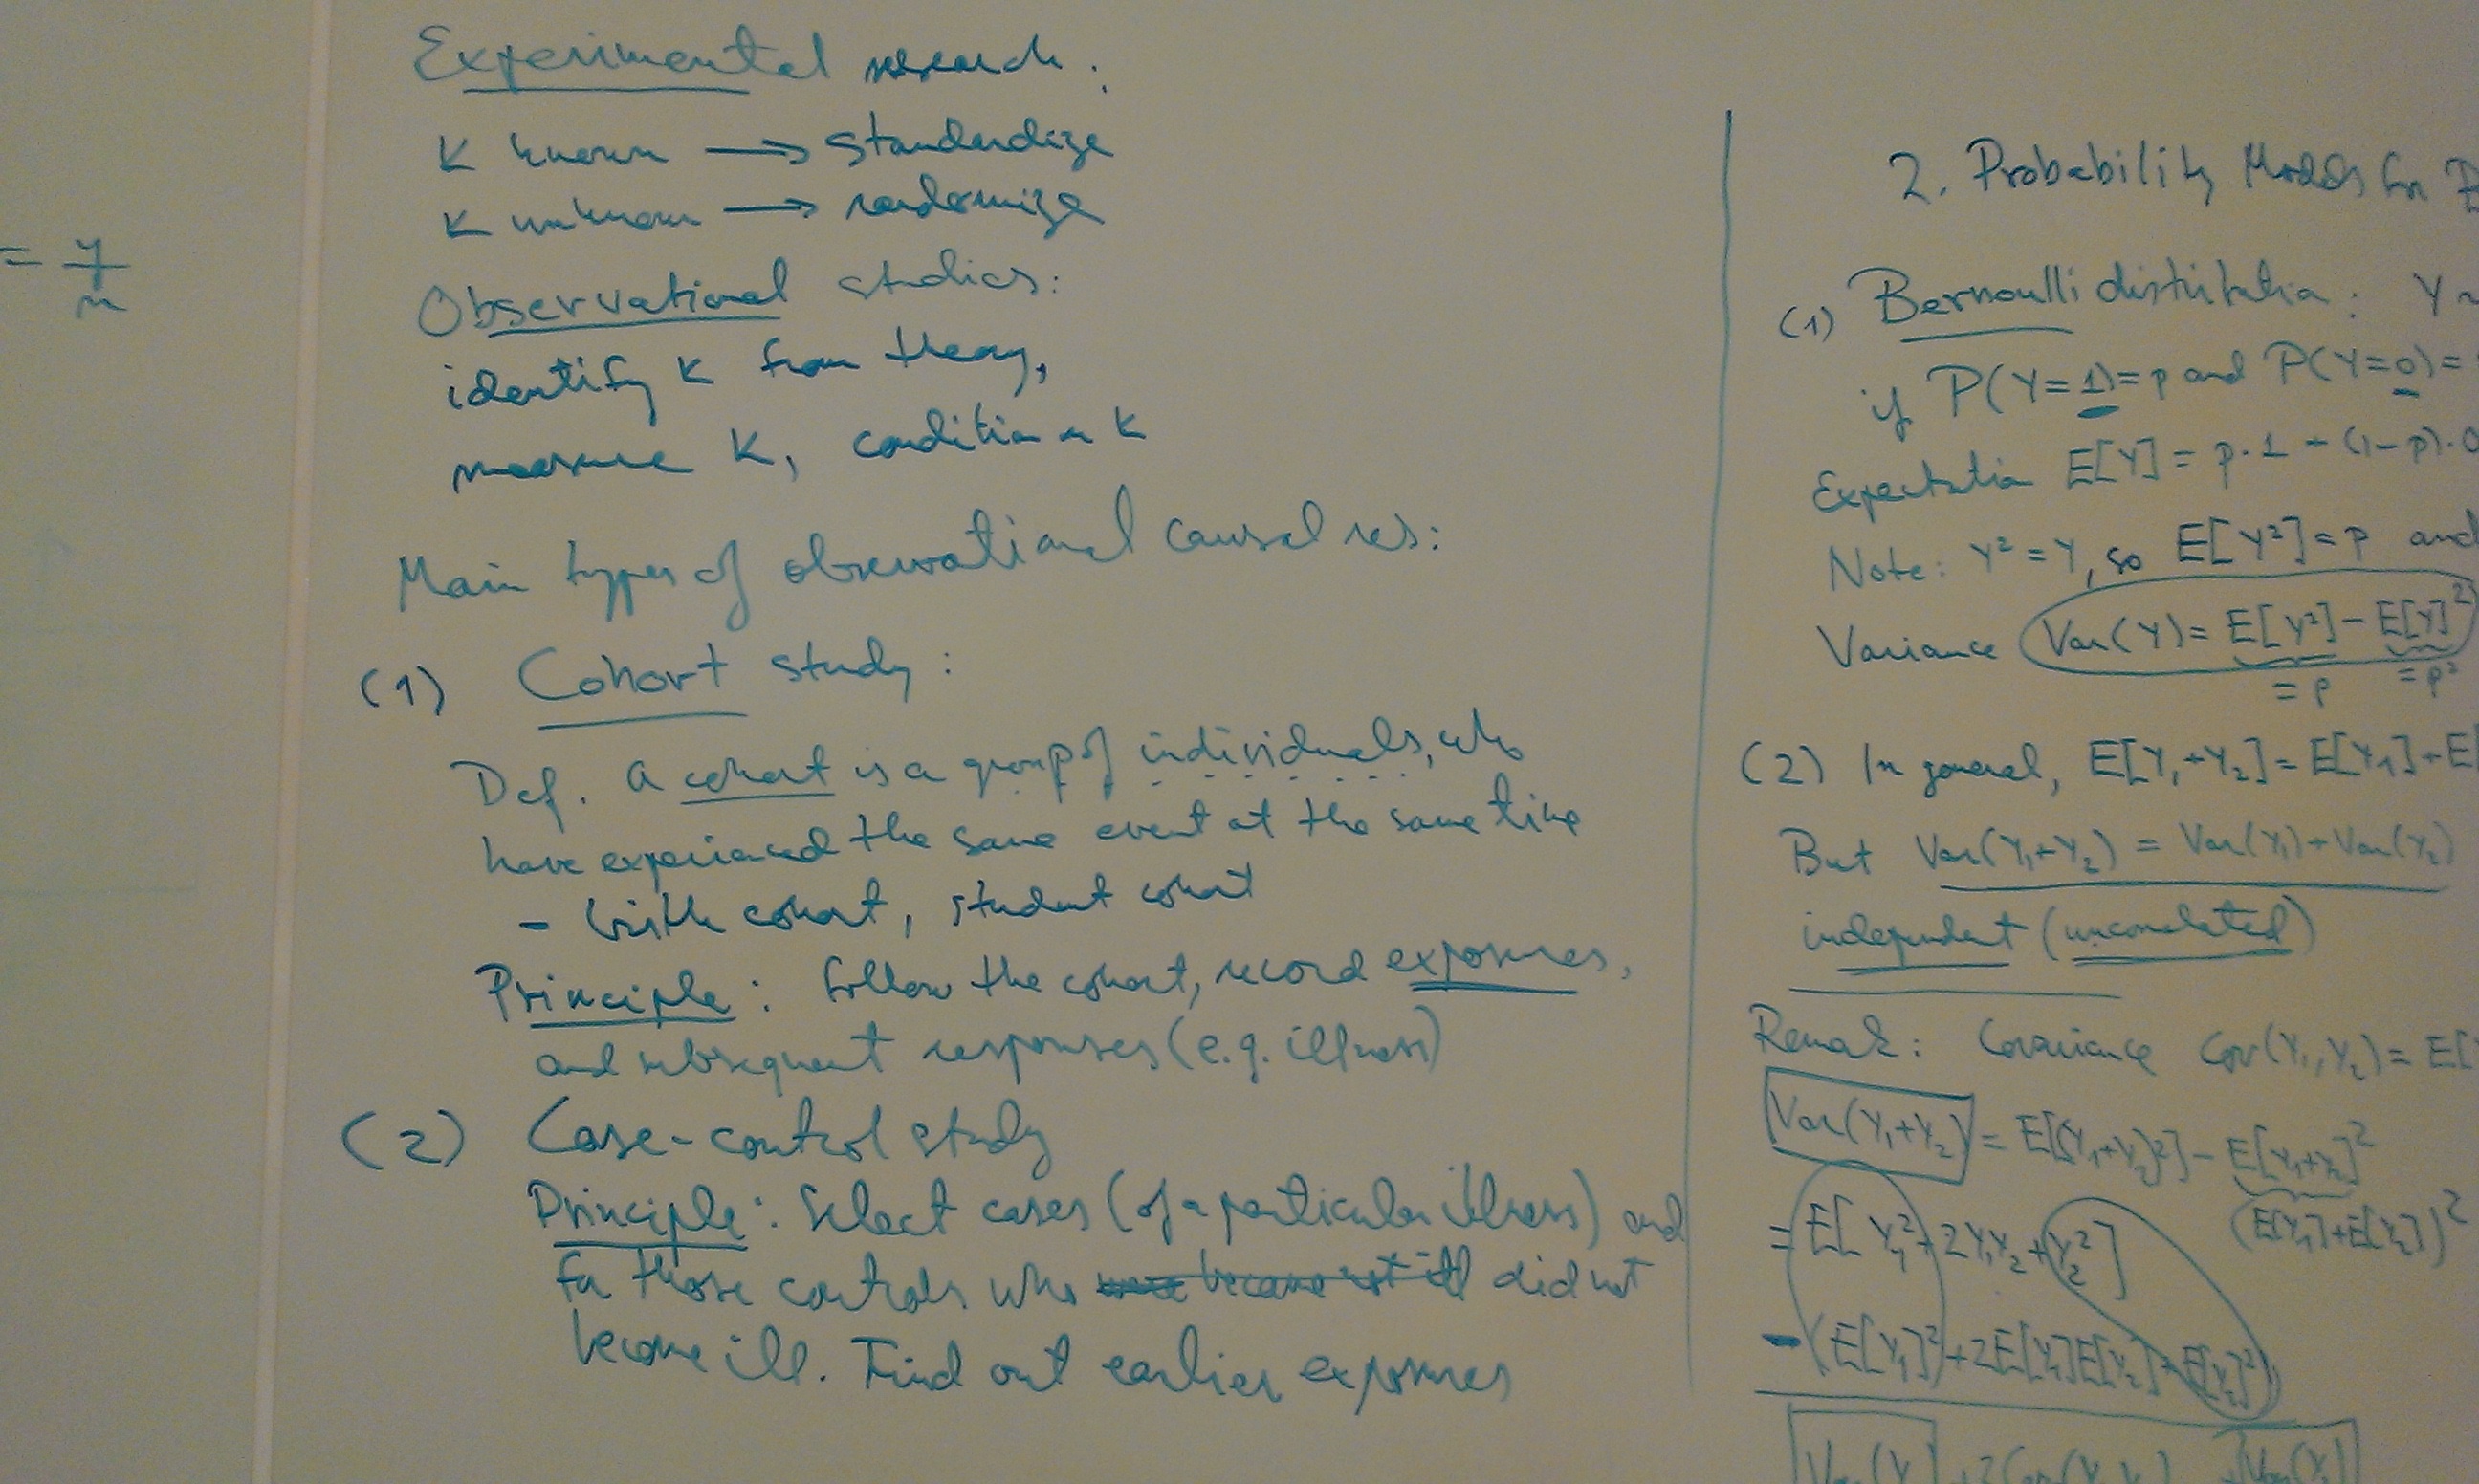 = y/n
Experimental research:
K known → standardize
K unknown → randomize
Observational studies:
identify K from theory,
measure K, condition on K
Main types of observational causal res:
(1) Cohort study:
Def. A cohort is a group of individuals, who
have experienced the same event at the same time
- birth cohort, student cohort
Principle: follow the cohort, record exposures,
and subsequent responses (e.g. illness)
(2) Case-control study
Principle: Select cases (of a particular illness) and
for those controls who became not ill did not
become ill. Find out earlier exposures
2. Probability Models for
(1) Bernoulli distribution: Y ~
if P(Y=1)=p and P(Y=0)=
Expectation E[Y] = p·1 + (1-p)·0
Note: Y² = Y, so E[Y²] = p and
Variance Var(Y) = E[Y²] - E[Y]²
= p = p²
(2) In general, E[Y₁+Y₂] = E[Y₁]+E[
But Var(Y₁+Y₂) = Var(Y₁)+Var(Y₂)
independent (uncorrelated)
Remark: Covariance Cov(Y₁,Y₂) = E[
Var(Y₁+Y₂) = E[(Y₁+Y₂)²] - E[Y₁+Y₂]²
(E[Y₁]+E[Y₂])²
= E[Y₁² + 2Y₁Y₂ + Y₂²]
- (E[Y₁]² + 2E[Y₁]E[Y₂] + E[Y₂]²)